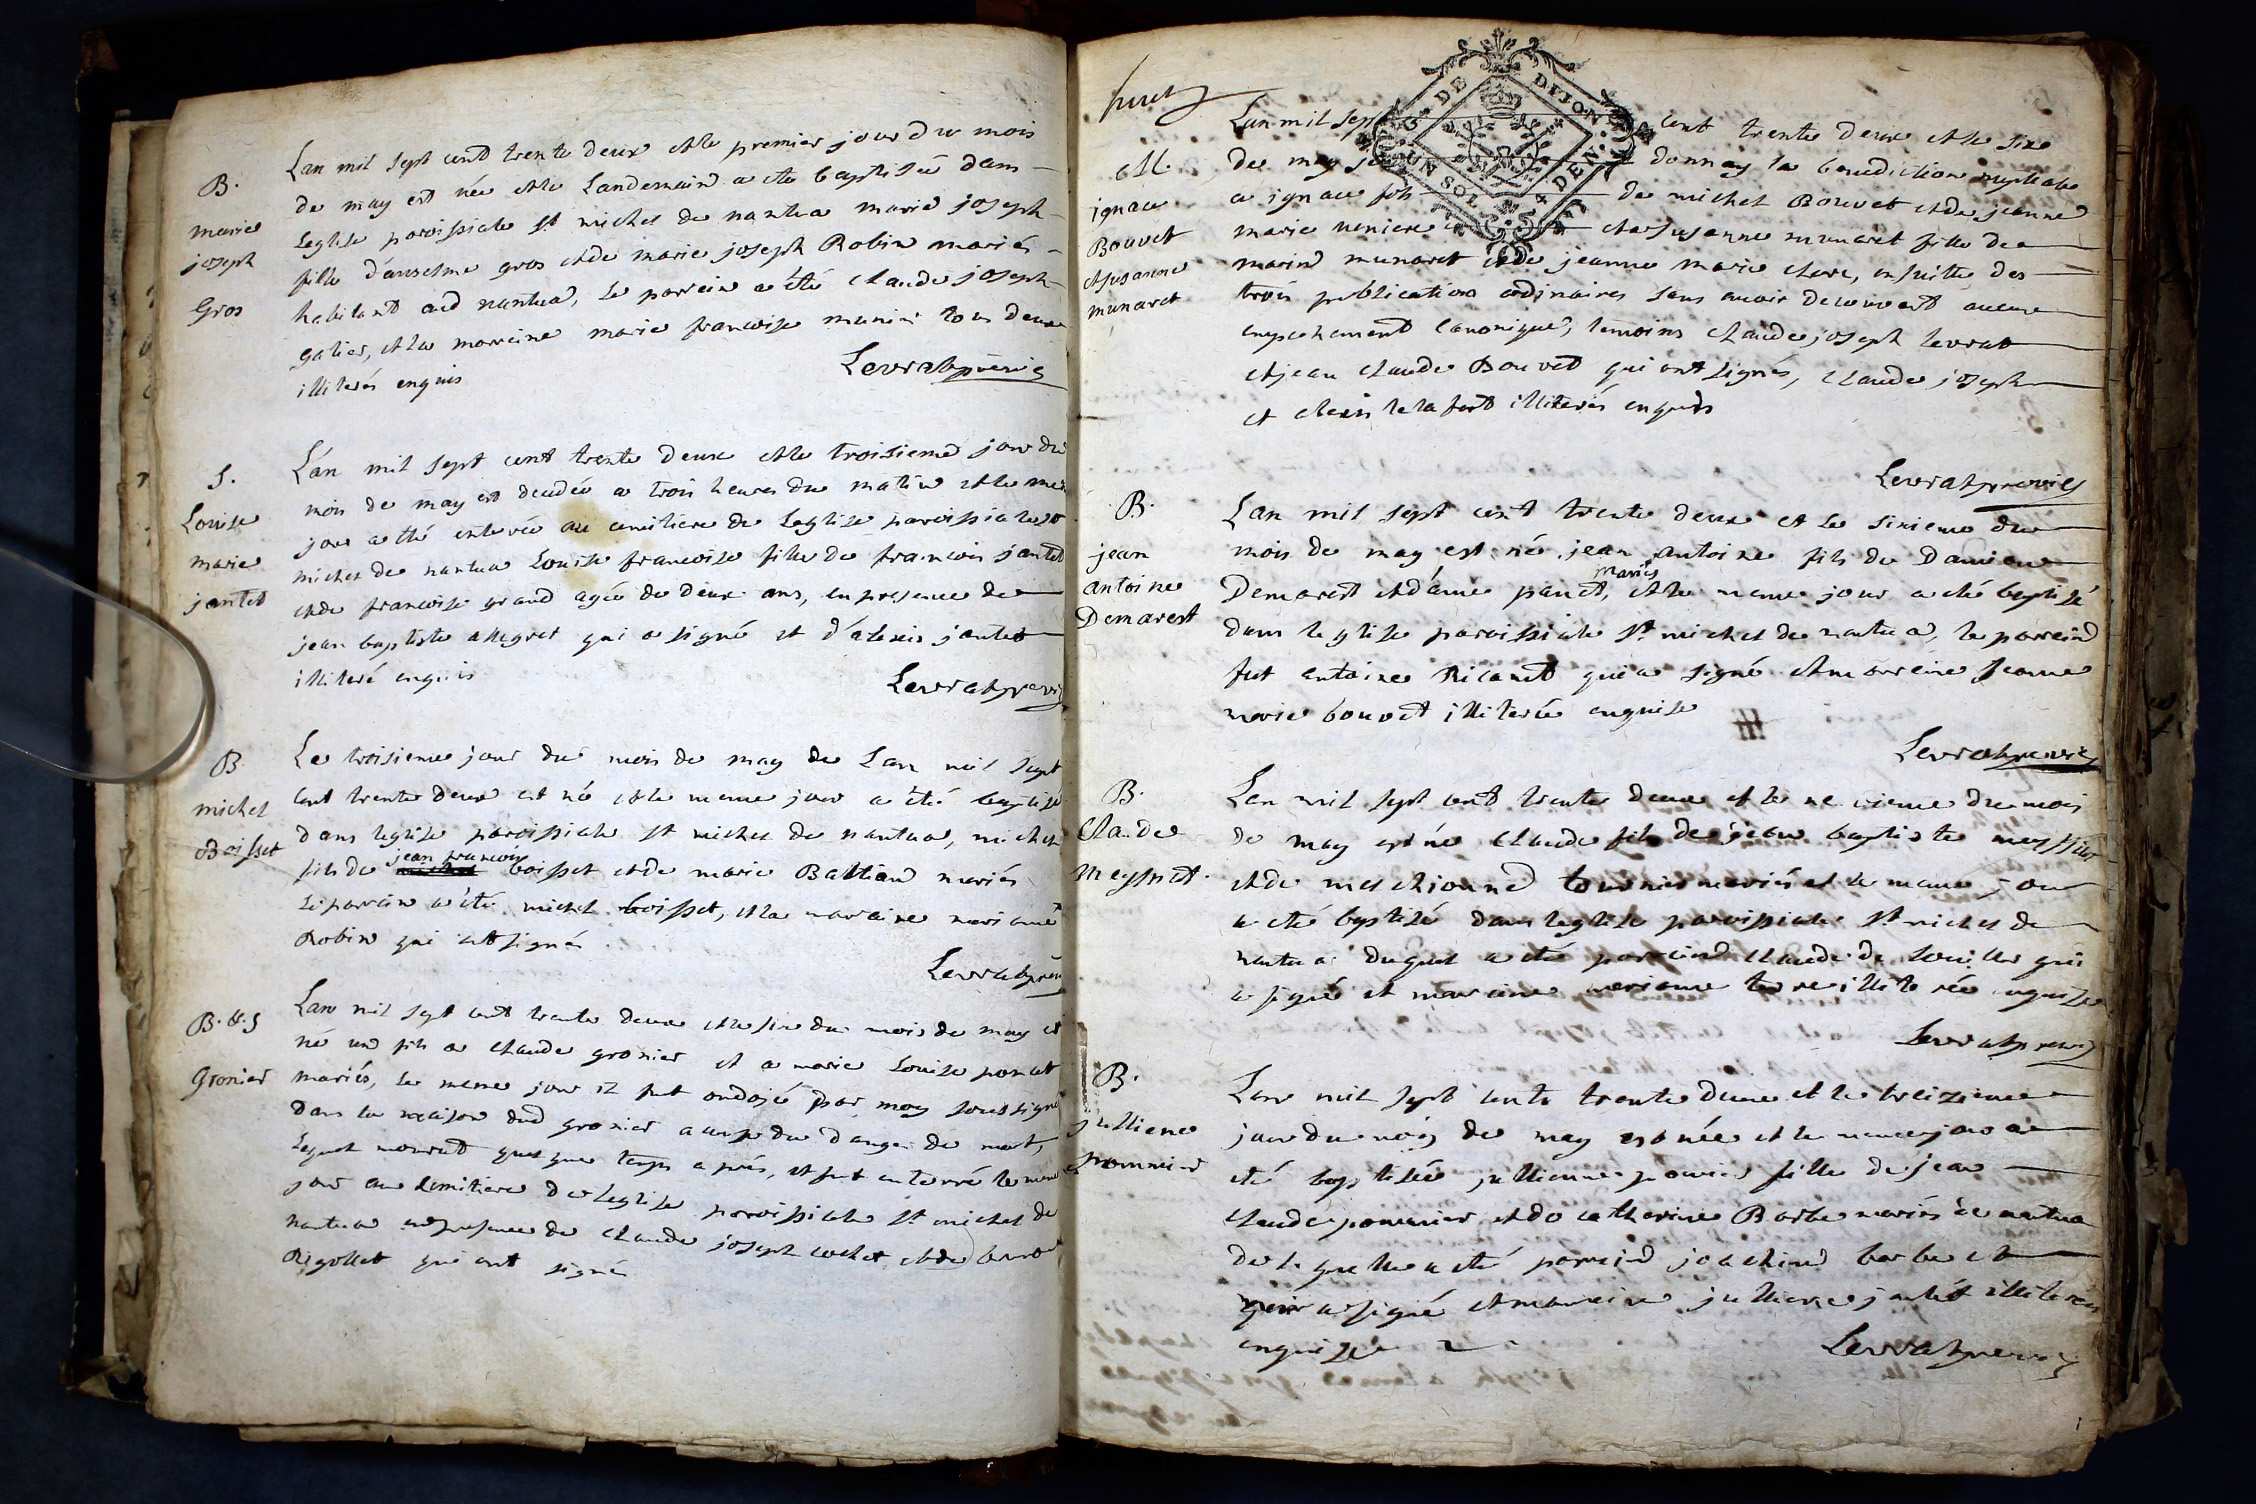 B.
marie
joseph
Gros
Lan mil sept cent trente deux et le premier jour du mois
de may est née et le Landemain a été baptisée dans
Leglise paroissiale st michel de nantua marie joseph
fille d'anselme gros et de marie joseph Robin mariés
habitant aud nantua, Le parrein a été claude joseph
galier, et la marreine marie francoise munier tous deux
illiterés enquis
Levrat
S.
Louise
marie
jantet
L'an mil sept cent trente deux et le troisieme jour du
mois de may est decedée a trois heures du matin et le meme
jour a été enterrée au cimitiere de Leglise paroissiale st
michel de nantua Louise francoise fille de francois jantet
et de francoise grand agée de deux ans, en presence de
jean baptiste allegret qui a signé et d'alexis jantet
illiteré enquis
Levrat
B.
michel
Boisset
Le troisieme jour du mois de may de Lan mil sept
cent trente deux est né et le meme jour a été baptisé
dans leglise paroissiale st michel de nantua, michel
fils de jean francois boisset et de marie Bastian mariés
Le parrein a été michel boisset, et la marraine mariane
Robin qui ont signé
Levrat
B. & S
Gronier
Lan mil sept cent trente deux et le six du mois de may est
né un fils a claude gronier et a marie Louise poncet
mariés, le meme jour il fut ondoié par moy soussigné
dans la maison dud gronier a cause du danger de mort,
Lequel mourut quelque temps aprés, et fut enterré le meme
jour au cimitiere de Leglise paroissiale st michel de
nantua en presence de claude joseph cochet et de
Regollet qui ont signé
M.
ignace
Bouvet
et susanne
munaret
GEN. DE DIJON
UN SOL 4 DEN.
Lan mil sept cent trente deux et le six
de may donnay la benediction nuptiale
a ignace fils de michel Bouvet et de jeanne
marie et a susanne munaret fille de
marin munaret et de jeanne marie clerc, ensuitte des
trois publications ordinaires sans avoir decouvert aucun
empechement canonique, temoins claude joseph levrat
et jean claude Bouvet qui ont signés, claude joseph
et illiterés enquis
Levrat
B.
jean
antoine
Demarest
Lan mil sept cent trente deux et le sixieme du
mois de may est né jean antoine fils de Damien
Demarest et d'anne panet, mariés et le meme jour a été baptisé
dans leglise paroissiale st michel de nantua, le parrein
fut antoine Ricanet qui a signé et marreine jeanne
marie bouvet illiterée enquise
Levrat
B.
Claude
Meyssiet
Lan mil sept cent trente deux et le neuvieme du mois
de may est né claude fils de jean baptiste
et de melchionne tournier mariés et le meme jour
a été baptisé dans leglise paroissiale st michel de
nantua duquel a été parrein claude de qui
a signé et marreine mariane illiterée enquise
Levrat
B.
jullienne
pommier
Lan mil sept cent trente deux et le treizieme
jour du mois de may est née et le meme jour a
été baptisée jullienne fille de jean
claude pommier et de catherine Barbe mariés a nantua
de laquelle a été parrein joachim barbe et
qui a signé et marreine jullienne jantet illiterée
enquise
Levrat